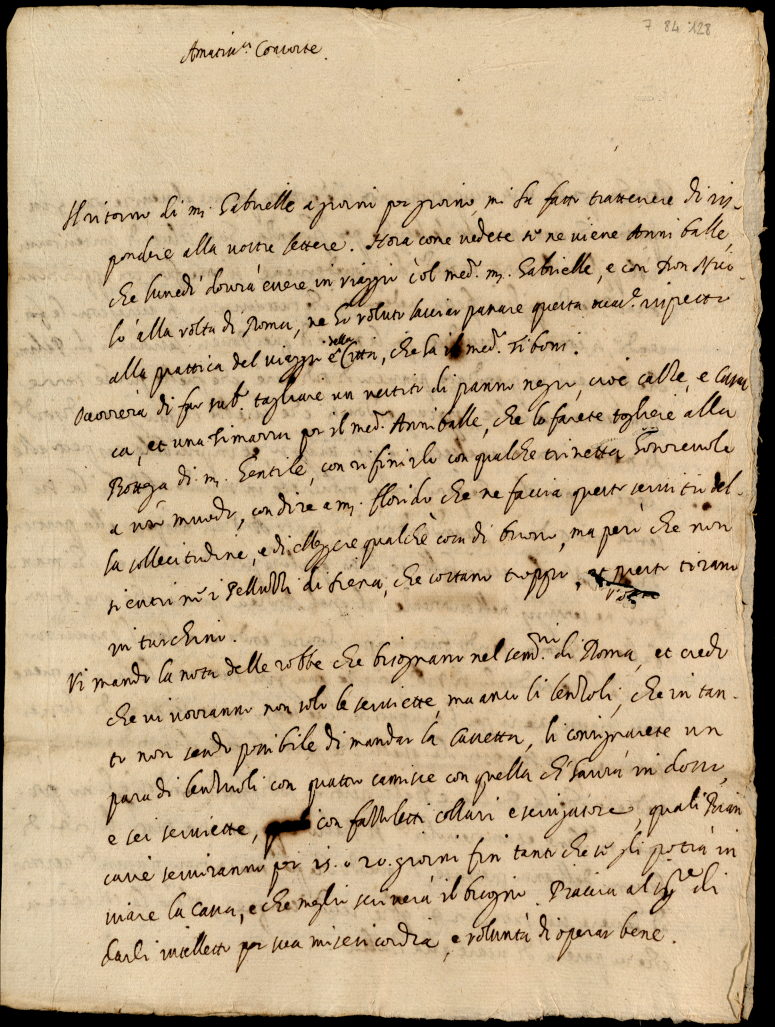 7 84 128
Amatiss.ma Consorte.
Il ritorno di m. Gabrielle a giorni per giorno, mi ha fatto trattenere di ris-
pondere alla vostre lettere. Hora come vedete se ne viene Anniballe,
che lunedì dovrà essere in viaggio col med.o m. Gabrielle, e con Don Nico-
lò alla volta di Roma, ne ho voluto lasciar passare questa rispetto
alla prattica del viaggio e della Città, che ha il med.o
Occorrerà di far sub.o tagliare un vestito di panno negro, cioè calze, e casac
ca, et una zimarra per il med.o Anniballe, che lo farete togliere alla
Bottega di m. Gentile, con rifinirlo con qualche trinetta honorevole
a usi mundo, con dire a m. Florido che ne faccia questo servitio del-
la sollecitudine, e di eleggere qualche cosa di buono, ma però che non
si entri ne i Pelluzzi di siena, che costano troppo, et questo tirano
in turchino.
Vi mando la nota delle robbe che bisognano nel sem.rio di Roma, et credo
che vi vorranno non solo le serviette, ma anco li lenzoli, che in tan-
to non sendo possibile di mandar la cassetta, li consignarete un
paro di lenzuoli con quattro camisce con quella ch'haverà in dosso,
e sei serviette, con fazzoletti collari e sciugatore, quali
serviranno per 15. o 20. giorni fin tanto che se gli potrà in
viare la cassa, e che meglio scriverà il bisogno. Piaccia al S.re di
darli intelletto per sua misericordia, e voluntà di operar bene.